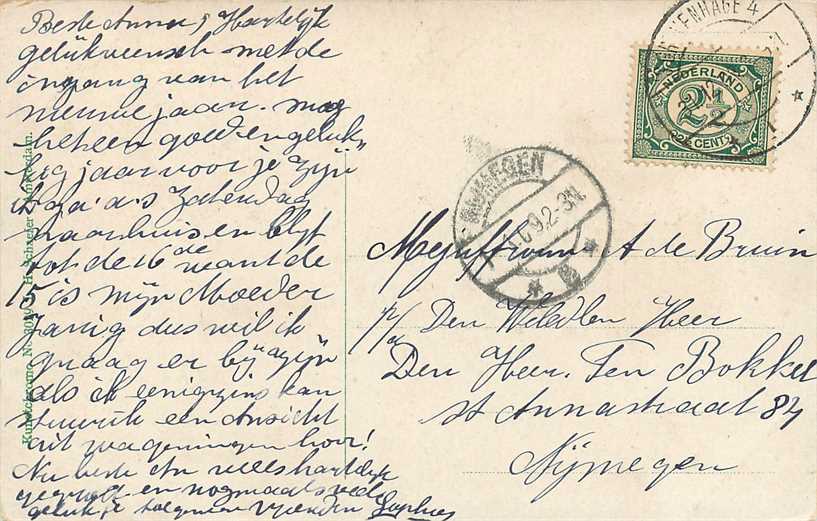 Beste Anna, Hartelijk
gelukwensch met de
ingang van het
nieuwe jaar. mag
het een goed en geluk"
kig jaar voor je zijn
Ik ga a.s Zaterdag
naar huis en blijf
tot de 16de want de
15 is mijn Moeder
Jarig dus wil ik
graag er bij zijn
als ik eenigzins kan
stuur ik een Ansicht
uit Wageningen hoor!
Nu beste An wees hartelijk
gegroet en nogmaals veel
geluk je toegenegen vriendin Sophie
Kunstchromo. No. H. Schaefer Amsterdam.
'S GRAVENHAGE 4
NEDERLAND
2½
2½ CENT
NIJMEGEN
9.2-3N.
Mejuffrouw A de Bruin
p/a Den Weledlen Heer
Den Heer. Ten Bokkel
st Annastraat 84
Nijmegen